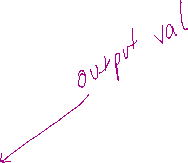 output val